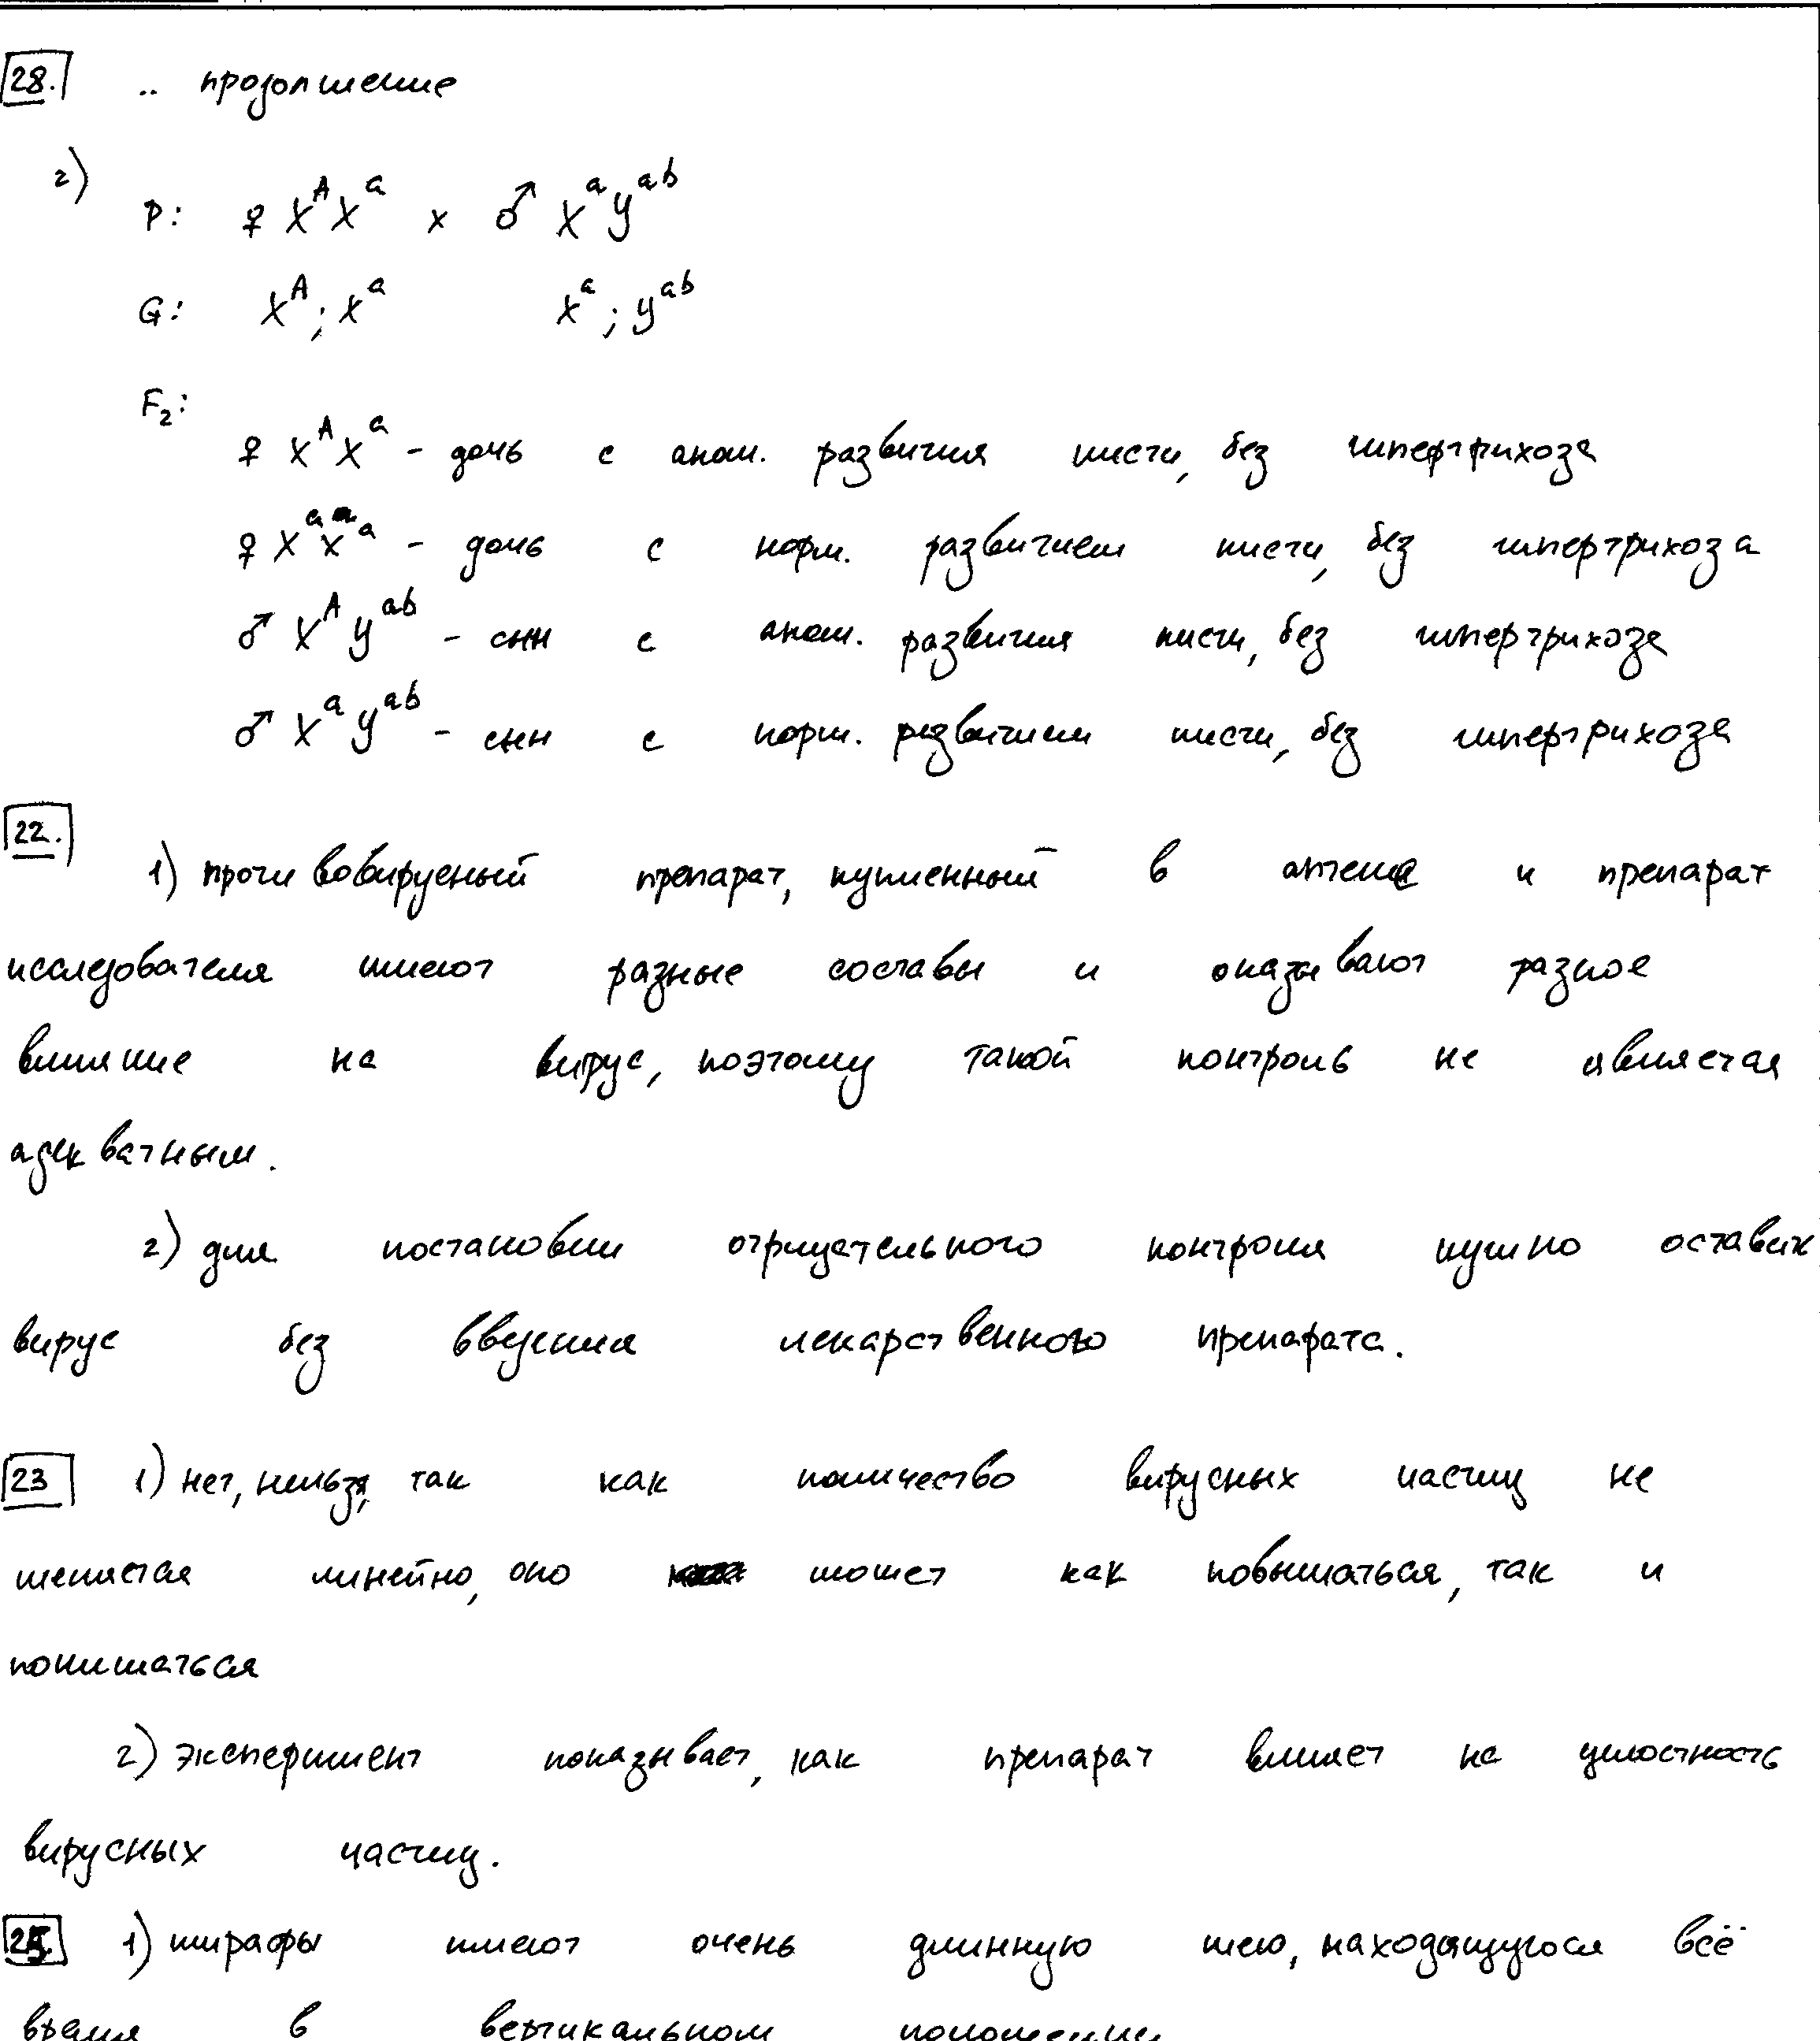 28. .. продолжение
2)
P: ♀ X^A X^a x ♂ X^a y^ab
G: X^A; X^a X^a; y^ab
F₂:
♀ X^A X^a - дочь с аном. развития кисти, без гипертрихоза
♀ X^a X^a - дочь с норм. развитием кисти, без гипертрихоза
♂ X^A y^ab - сын с аном. развития кисти, без гипертрихоза
♂ X^a y^ab - сын с норм. развитием кисти, без гипертрихоза
22.
1) противовирусный препарат, купленный в аптеке и препарат
исследователя имеют разные составы и оказывают разное
влияние на вирус, поэтому такой контроль не является
адекватным.
2) для постановки отрицательного контроля нужно оставить
вирус без введения лекарственного препарата.
23 1) нет, нельзя, так как количество вирусных частиц не
меняется линейно, оно может как повышаться, так и
понижаться
2) эксперимент показывает, как препарат влияет на целостность
вирусных частиц.
25. 1) жирафы имеют очень длинную шею, находящуюся всё
время в вертикальном положении